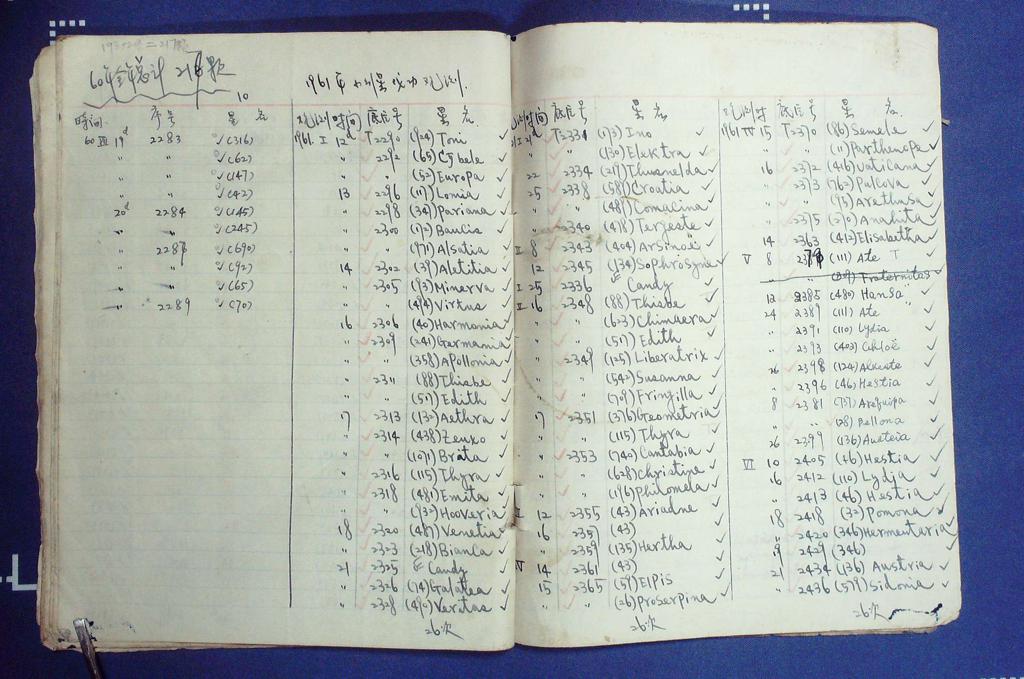 60年全年总计
10
时间 序号 星名
60 XII 19d 2283 (316)
〃 〃 (62)
〃 〃 (147)
〃 〃 (42)
20d 2284 (145)
〃 〃 (245)
〃 (690)
〃 〃 (92)
〃 〃 (65)
〃 2289 (70)
1961年小行星成功观测
观测时间 底片号 星名
1961. I 12d T2290 (924) Toni
〃 2292 (65) Cybele
〃 〃 (52) Europa
13 2296 (11) Lomia
〃 2298 (347) Pariana
〃 2300 (172) Baucis
〃 〃 (971) Alsatia
14 2302 (39) Aletitia
〃 2305 (93) Minerva
〃 〃 (494) Virtus
16 2306 (40) Harmonia
〃 2309 (241) Germania
〃 〃 (358) Apollonia
〃 2311 (88) Thisbe
〃 〃 (517) Edith
17 2313 (132) Aethra
〃 2314 (438) Zeuxo
〃 〃 (1071) Brita
〃 2316 (115) Thyra
〃 2318 (481) Emita
〃 〃 (932) Hooveria
18 2320 (487) Venetia
〃 2323 (218) Bianca
21 2325 Candy
〃 2326 (74) Galatea
〃 2328 (490) Veritas
26次
观测时间 底片号 星名
T2334 (173) Ino
〃 〃 (130) Elektra
22 2334 (219) Thusnelda
25 2338 (589) Croatia
〃 〃 (489) Comacina
〃 2340 (478) Tergeste
8 2343 (404) Arsinoë
12 2345 (134) Sophrosyne
I 25 2336 Candy
II 16 2348 (88) Thisbe
〃 〃 (623) Chimaera
〃 〃 (517) Edith
〃 2349 (125) Liberatrix
〃 〃 (542) Susanna
〃 〃 (709) Fringilla
17 2351 (376) Geometria
〃 〃 (115) Thyra
〃 2353 (740) Cantabia
〃 〃 (628) Christine
〃 〃 (196) Philomela
12 2355 (43) Ariadne
16 2357 (43)
〃 2359 (135) Hertha
IV 14 2361 (43)
15 2365 (59) Elpis
〃 〃 (26) Proserpina
26次
观测时 底片号 星名
1961 IV 15 T2370 (86) Semele
〃 〃 (11) Parthenope
16 2372 (416) Vaticana
〃 2373 (762) Pulcova
〃 〃 (95) Arethusa
〃 2375 (270) Anahita
14 2363 (412) Elisabetha
V 8 (111) Ate
(309) Fraternitas
13 2385 (480) Hansa
24 2389 (111) Ate
〃 2391 (110) Lydia
〃 2393 (402) Chloë
26 2398 (124) Alkeste
〃 2396 (46) Hestia
8 2381 (737) Arequipa
〃 〃 (28) Bellona
26 2399 (136) Austria
VI 10 2405 (46) Hestia
16 2412 (110) Lydia
〃 2413 (46) Hestia
18 2418 (32) Pomona
〃 2420 (346) Hermentaria
19 2429 (346)
21 2434 (136) Austria
〃 2436 (579) Sidonia
26次